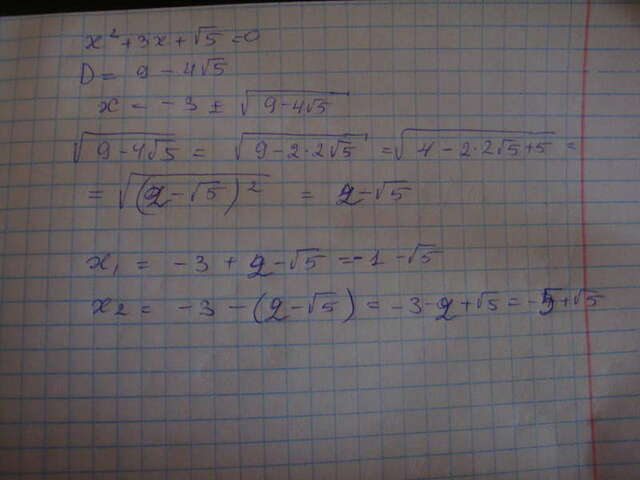 x² + 3x + √5 = 0
D = 9 - 4√5
x = -3 ± √(9-4√5)
√(9-4√5) = √(9-2·2√5) = √(4-2·2√5+5) =
= √((2-√5)²) = 2-√5
x₁ = -3 + 2-√5 = -1 -√5
x₂ = -3 -(2-√5) = -3-2+√5 = -5+√5